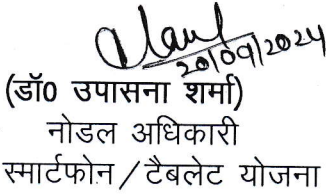 20/09/2024
(डॉ0 उपासना शर्मा)
नोडल अधिकारी
स्मार्टफोन / टैबलेट योजना